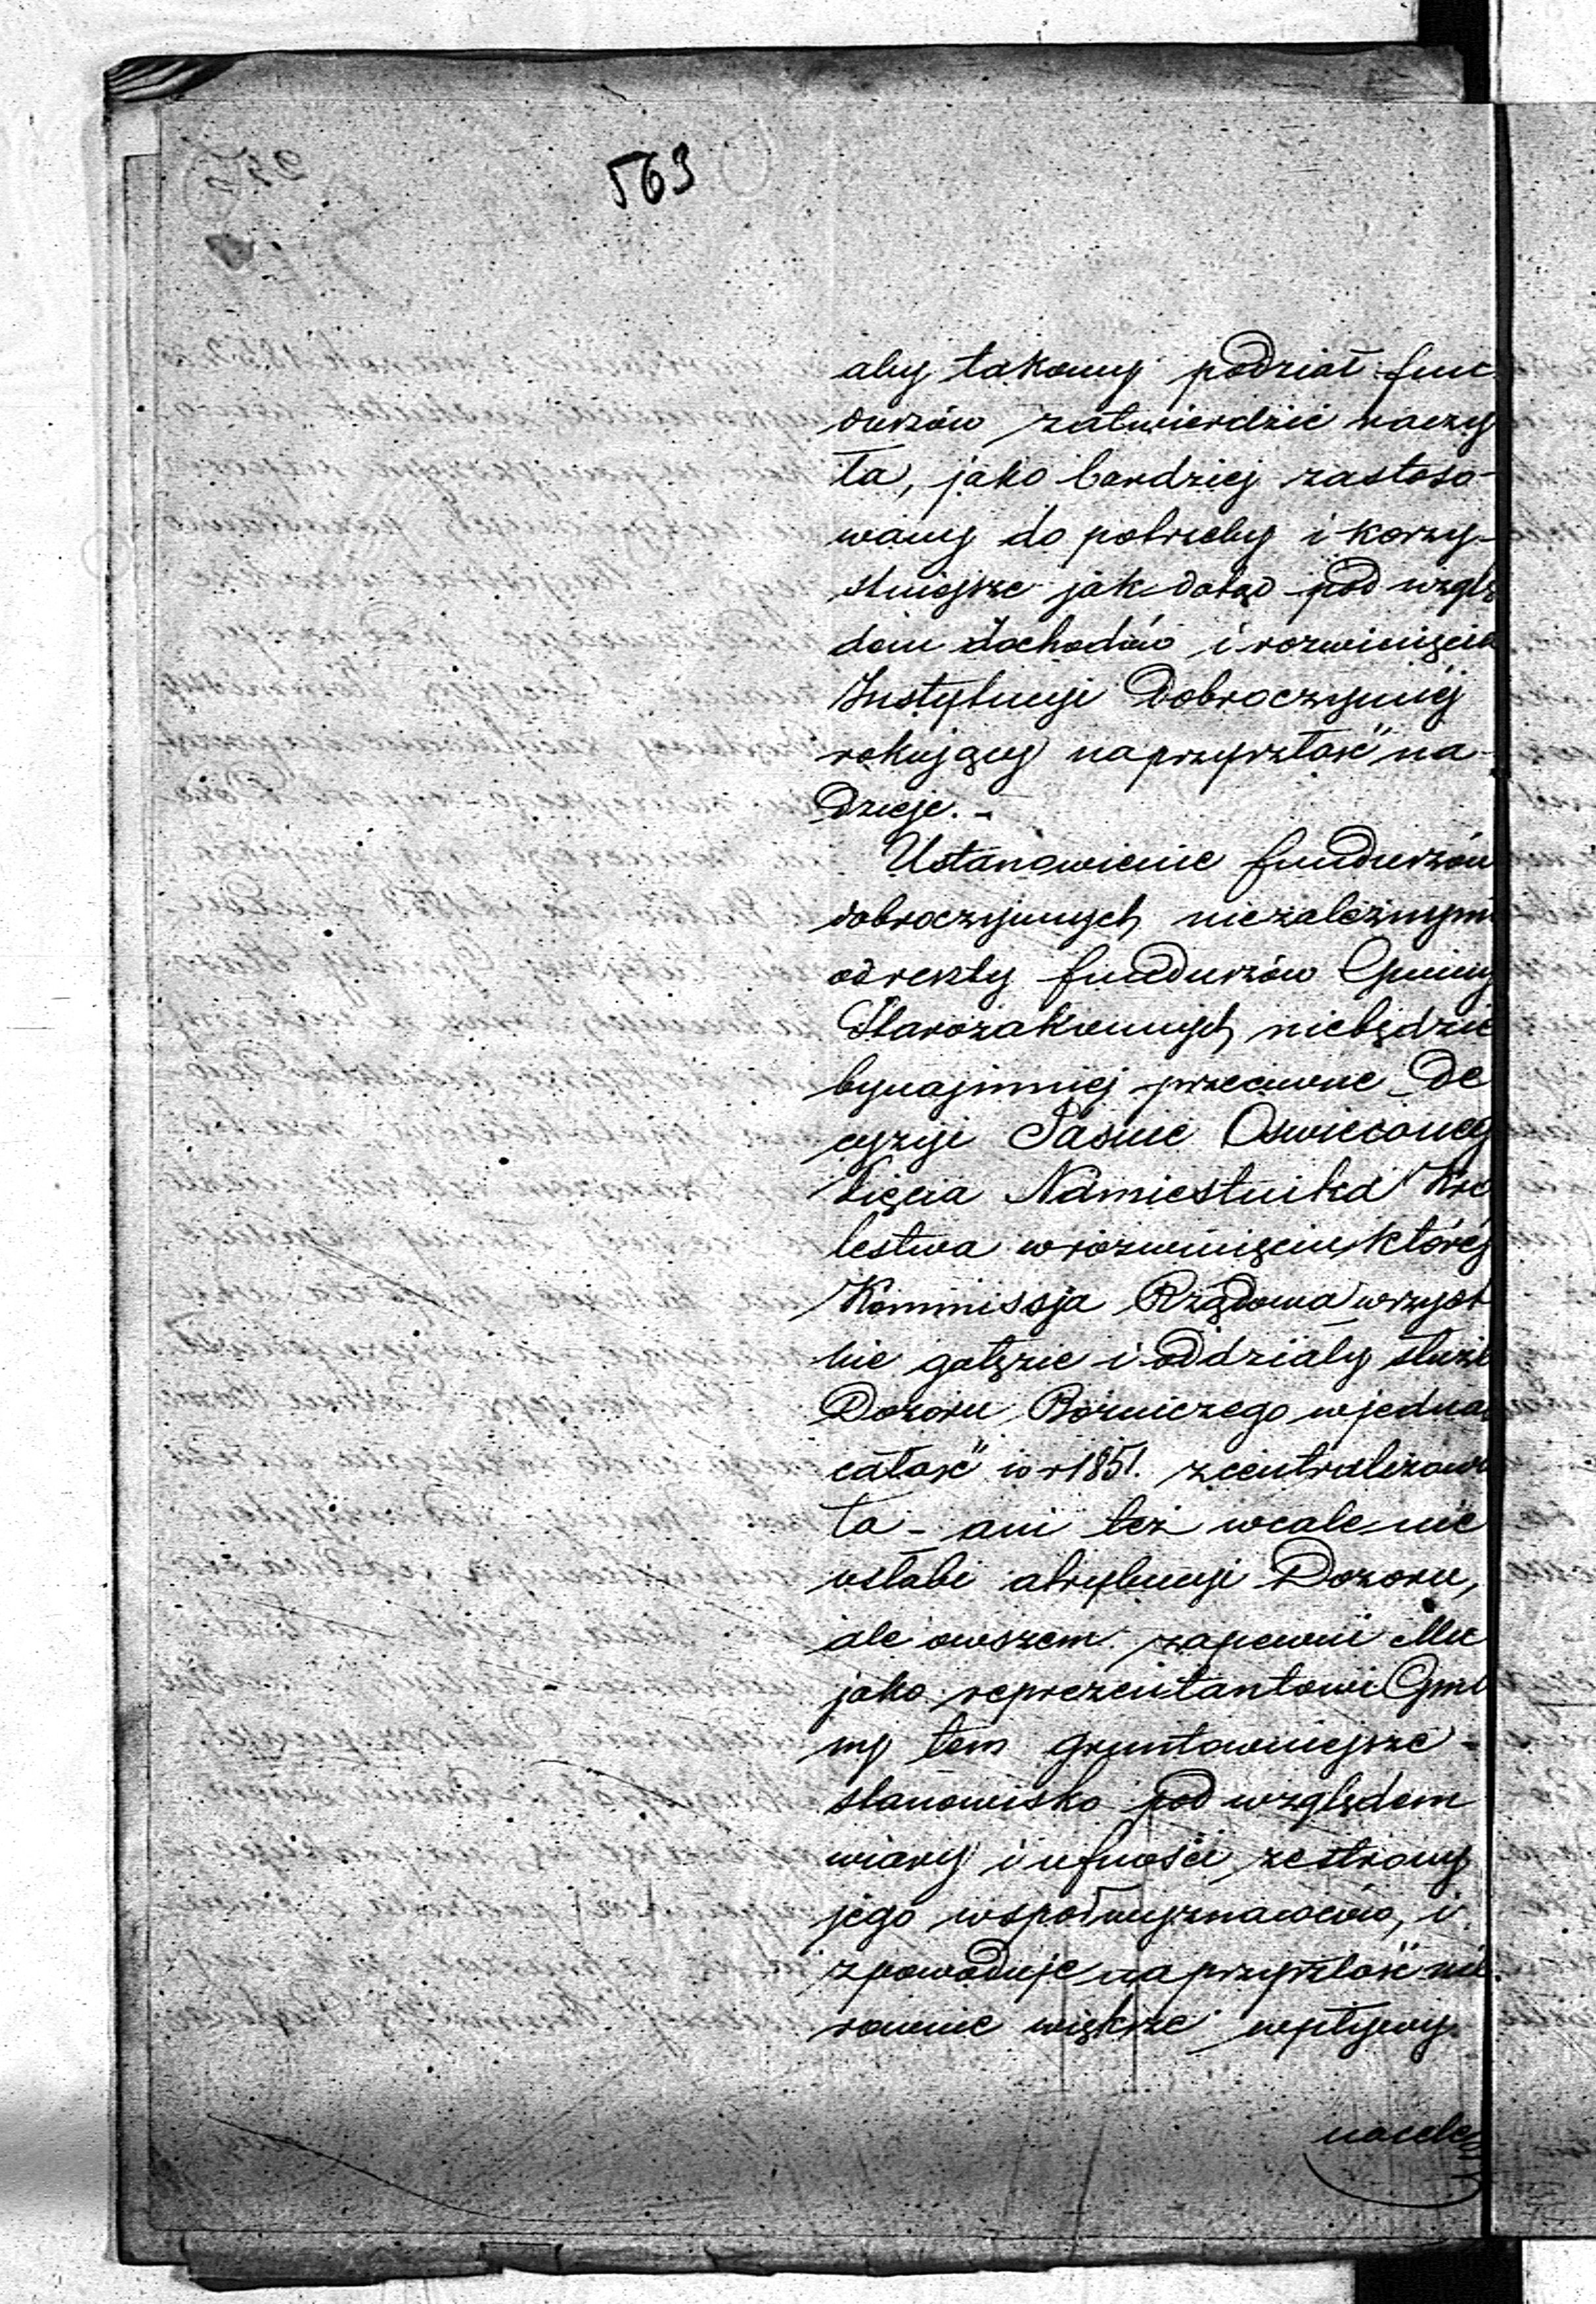 563
aby takowy podział fun
duszów zatwierdzić raczy
ła, jako bardziej zastoso-
wany do potrzeby i korzy-
stniejsze jak dotąd pod wzglę
dem dochodów i rozwinięcia
Instytucyi Dobroczynnéj
rokujący naprzyszłość na-
dzieje. -
Ustanowienie funduszów
dobroczynnych niezależnym
od reszty funduszów Gminy
Starozakonnych niebędzie
bynajmniej przeciwne De
cyzyi Jaśnie Oświeconeg
Xięcia Namiestnika Kró
lestwa w rozwinięciu któréj
Kommissja Rządowa wszyst
kie gałęzie i oddziały służb
Dozoru Bożniczego w jedną
całość w r 1851. zcentralizowa
ła - ani też wcale nie
osłabi atrybucyi Dozoru,
ale owszem zapewni Mu
jako reprezentantowi Gmi
ny tem gruntowniejsze -
stanowisko pod względem
wiary i ufności ze strony
jego współwyznawców, i
spowoduje naprzyszłość nie
rownie większe wpływy
na cele